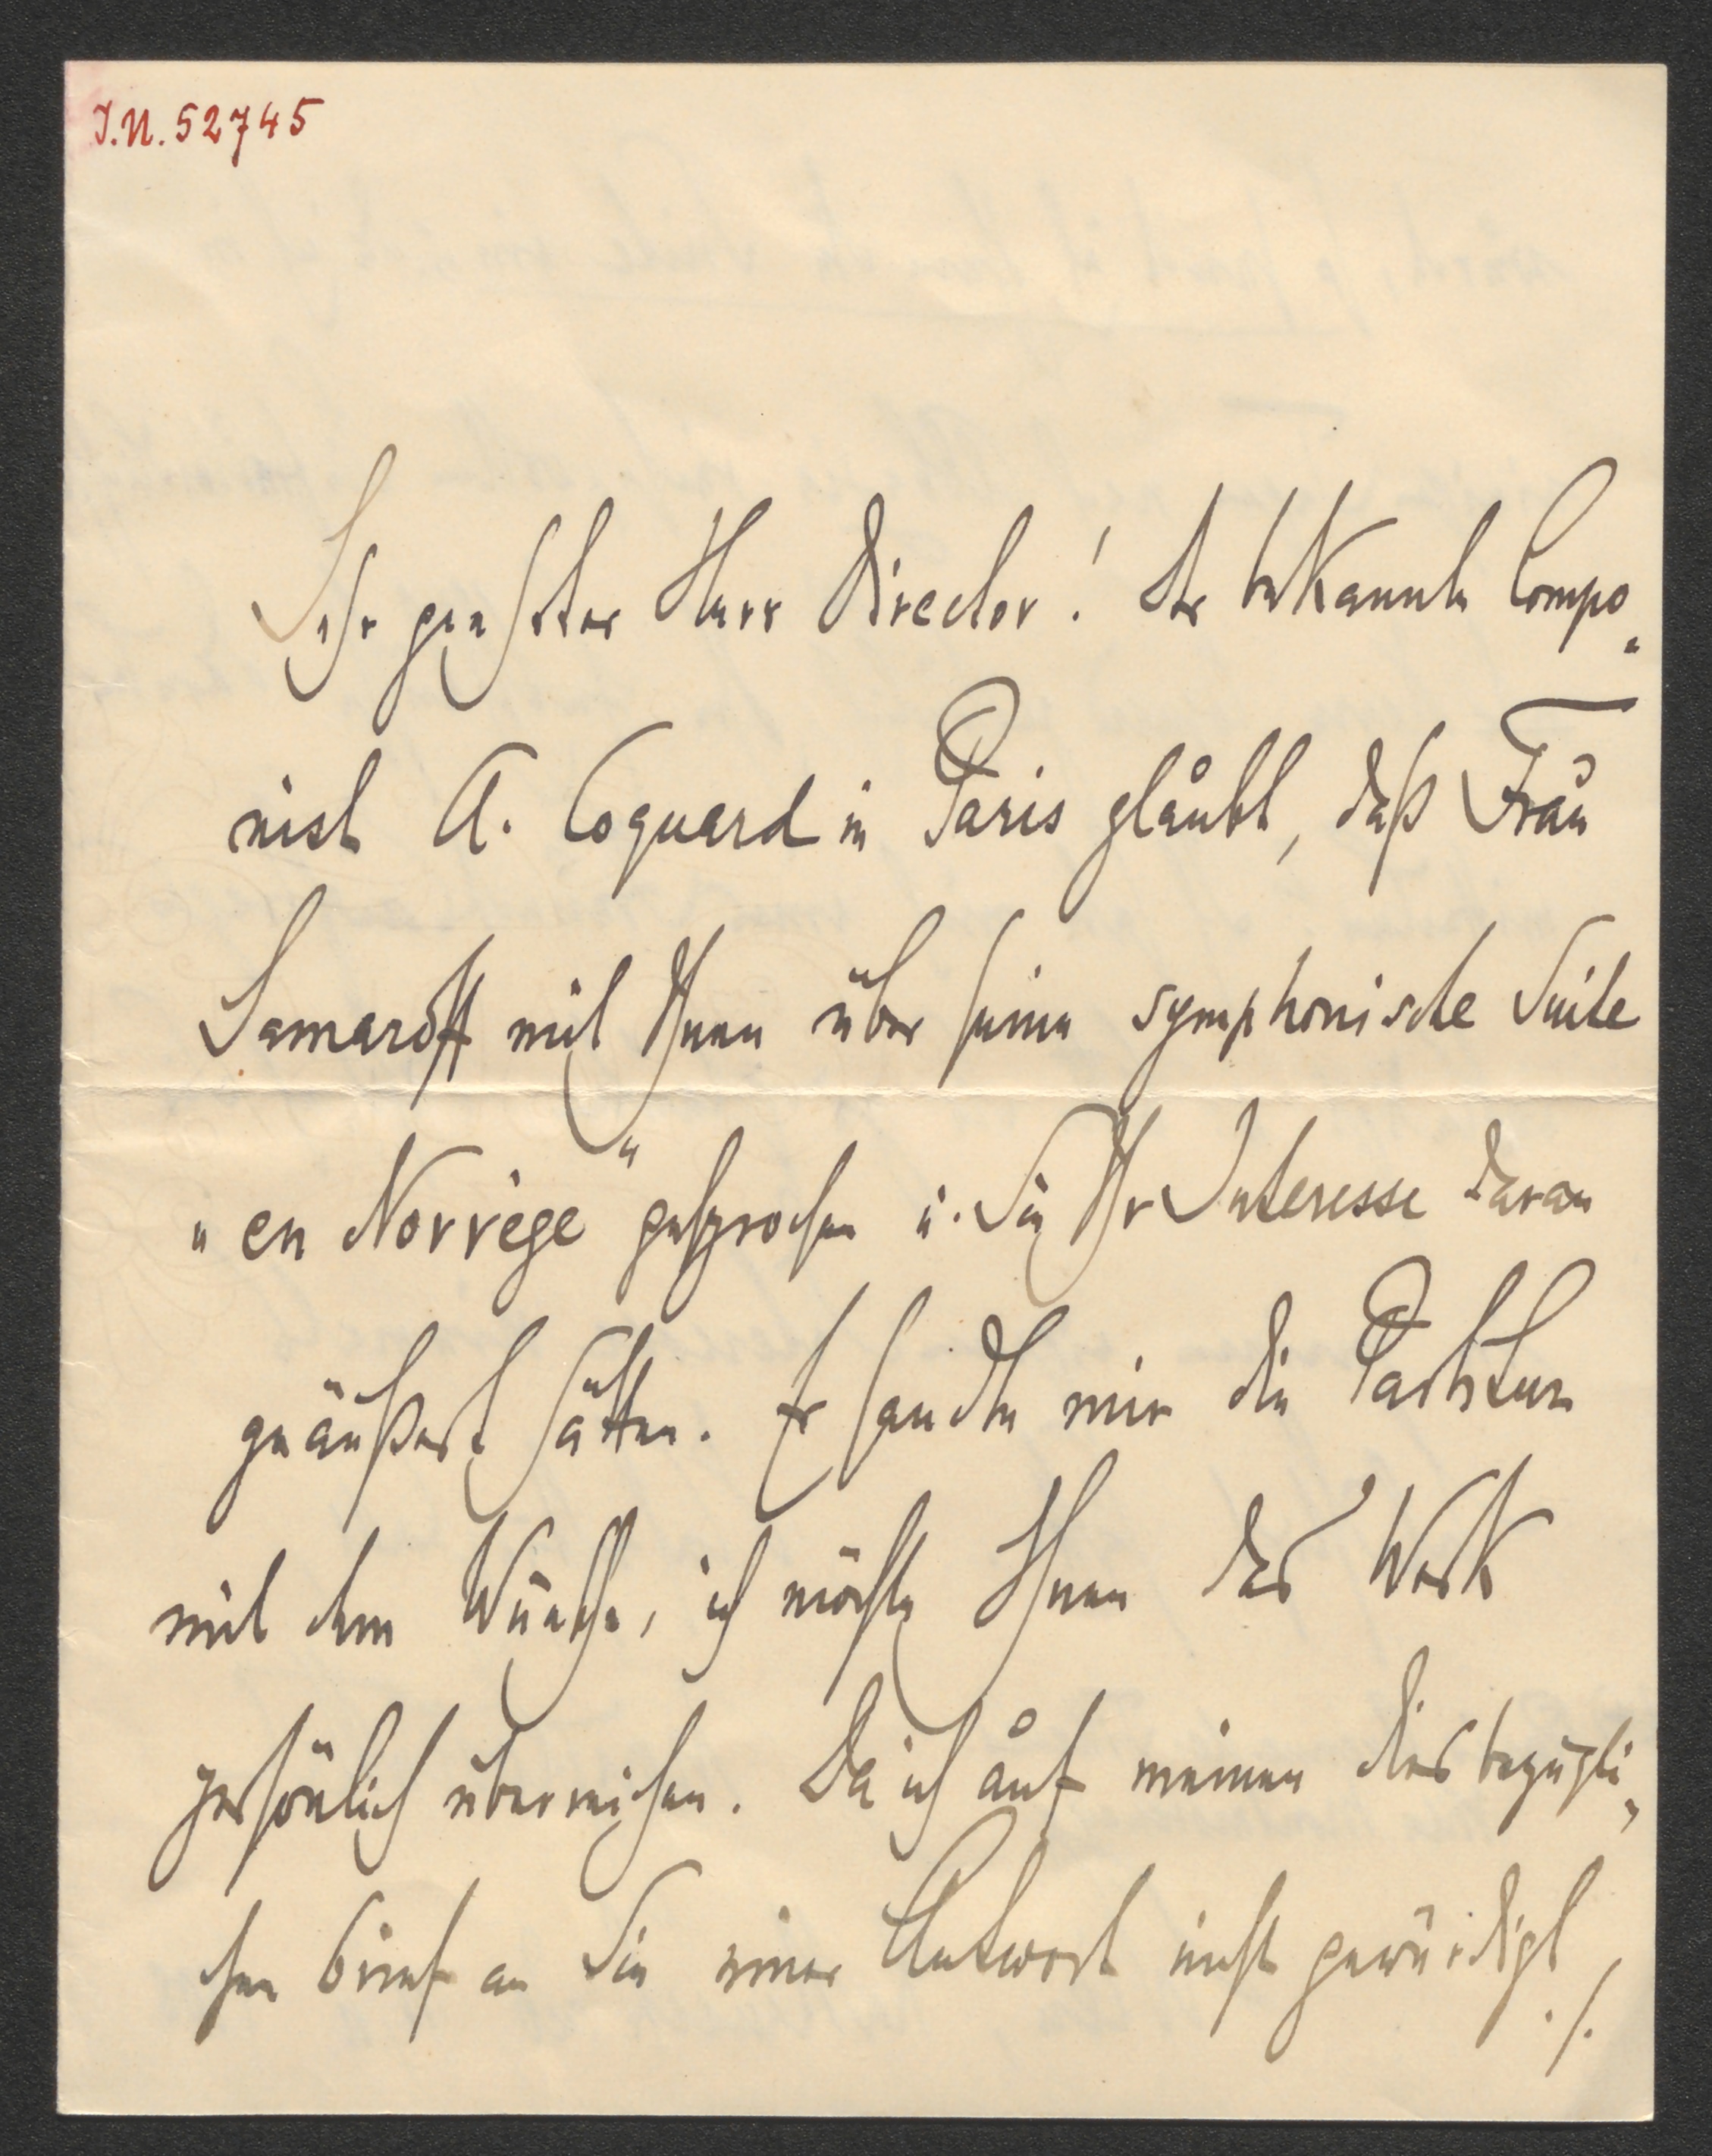 J.N. 52745
Sehr geehrter Herr Director! Der bekannte Compo„
nist A. Coquard in Paris glaubt, daß Frau
Samaroff mit Ihnen über seine symphonische Suite
„en Norvège“ gesprochen u. Sie Ihr Interesse daran
geäußert hätten. Er sandte mir die Partitur
mit dem Wunsche, ich möchte Ihnen das Werk
persönlich überreichen. Da ich auf meinen diesbezügli„
chen Brief an Sie einer Antwort nicht gewürdigt
./.